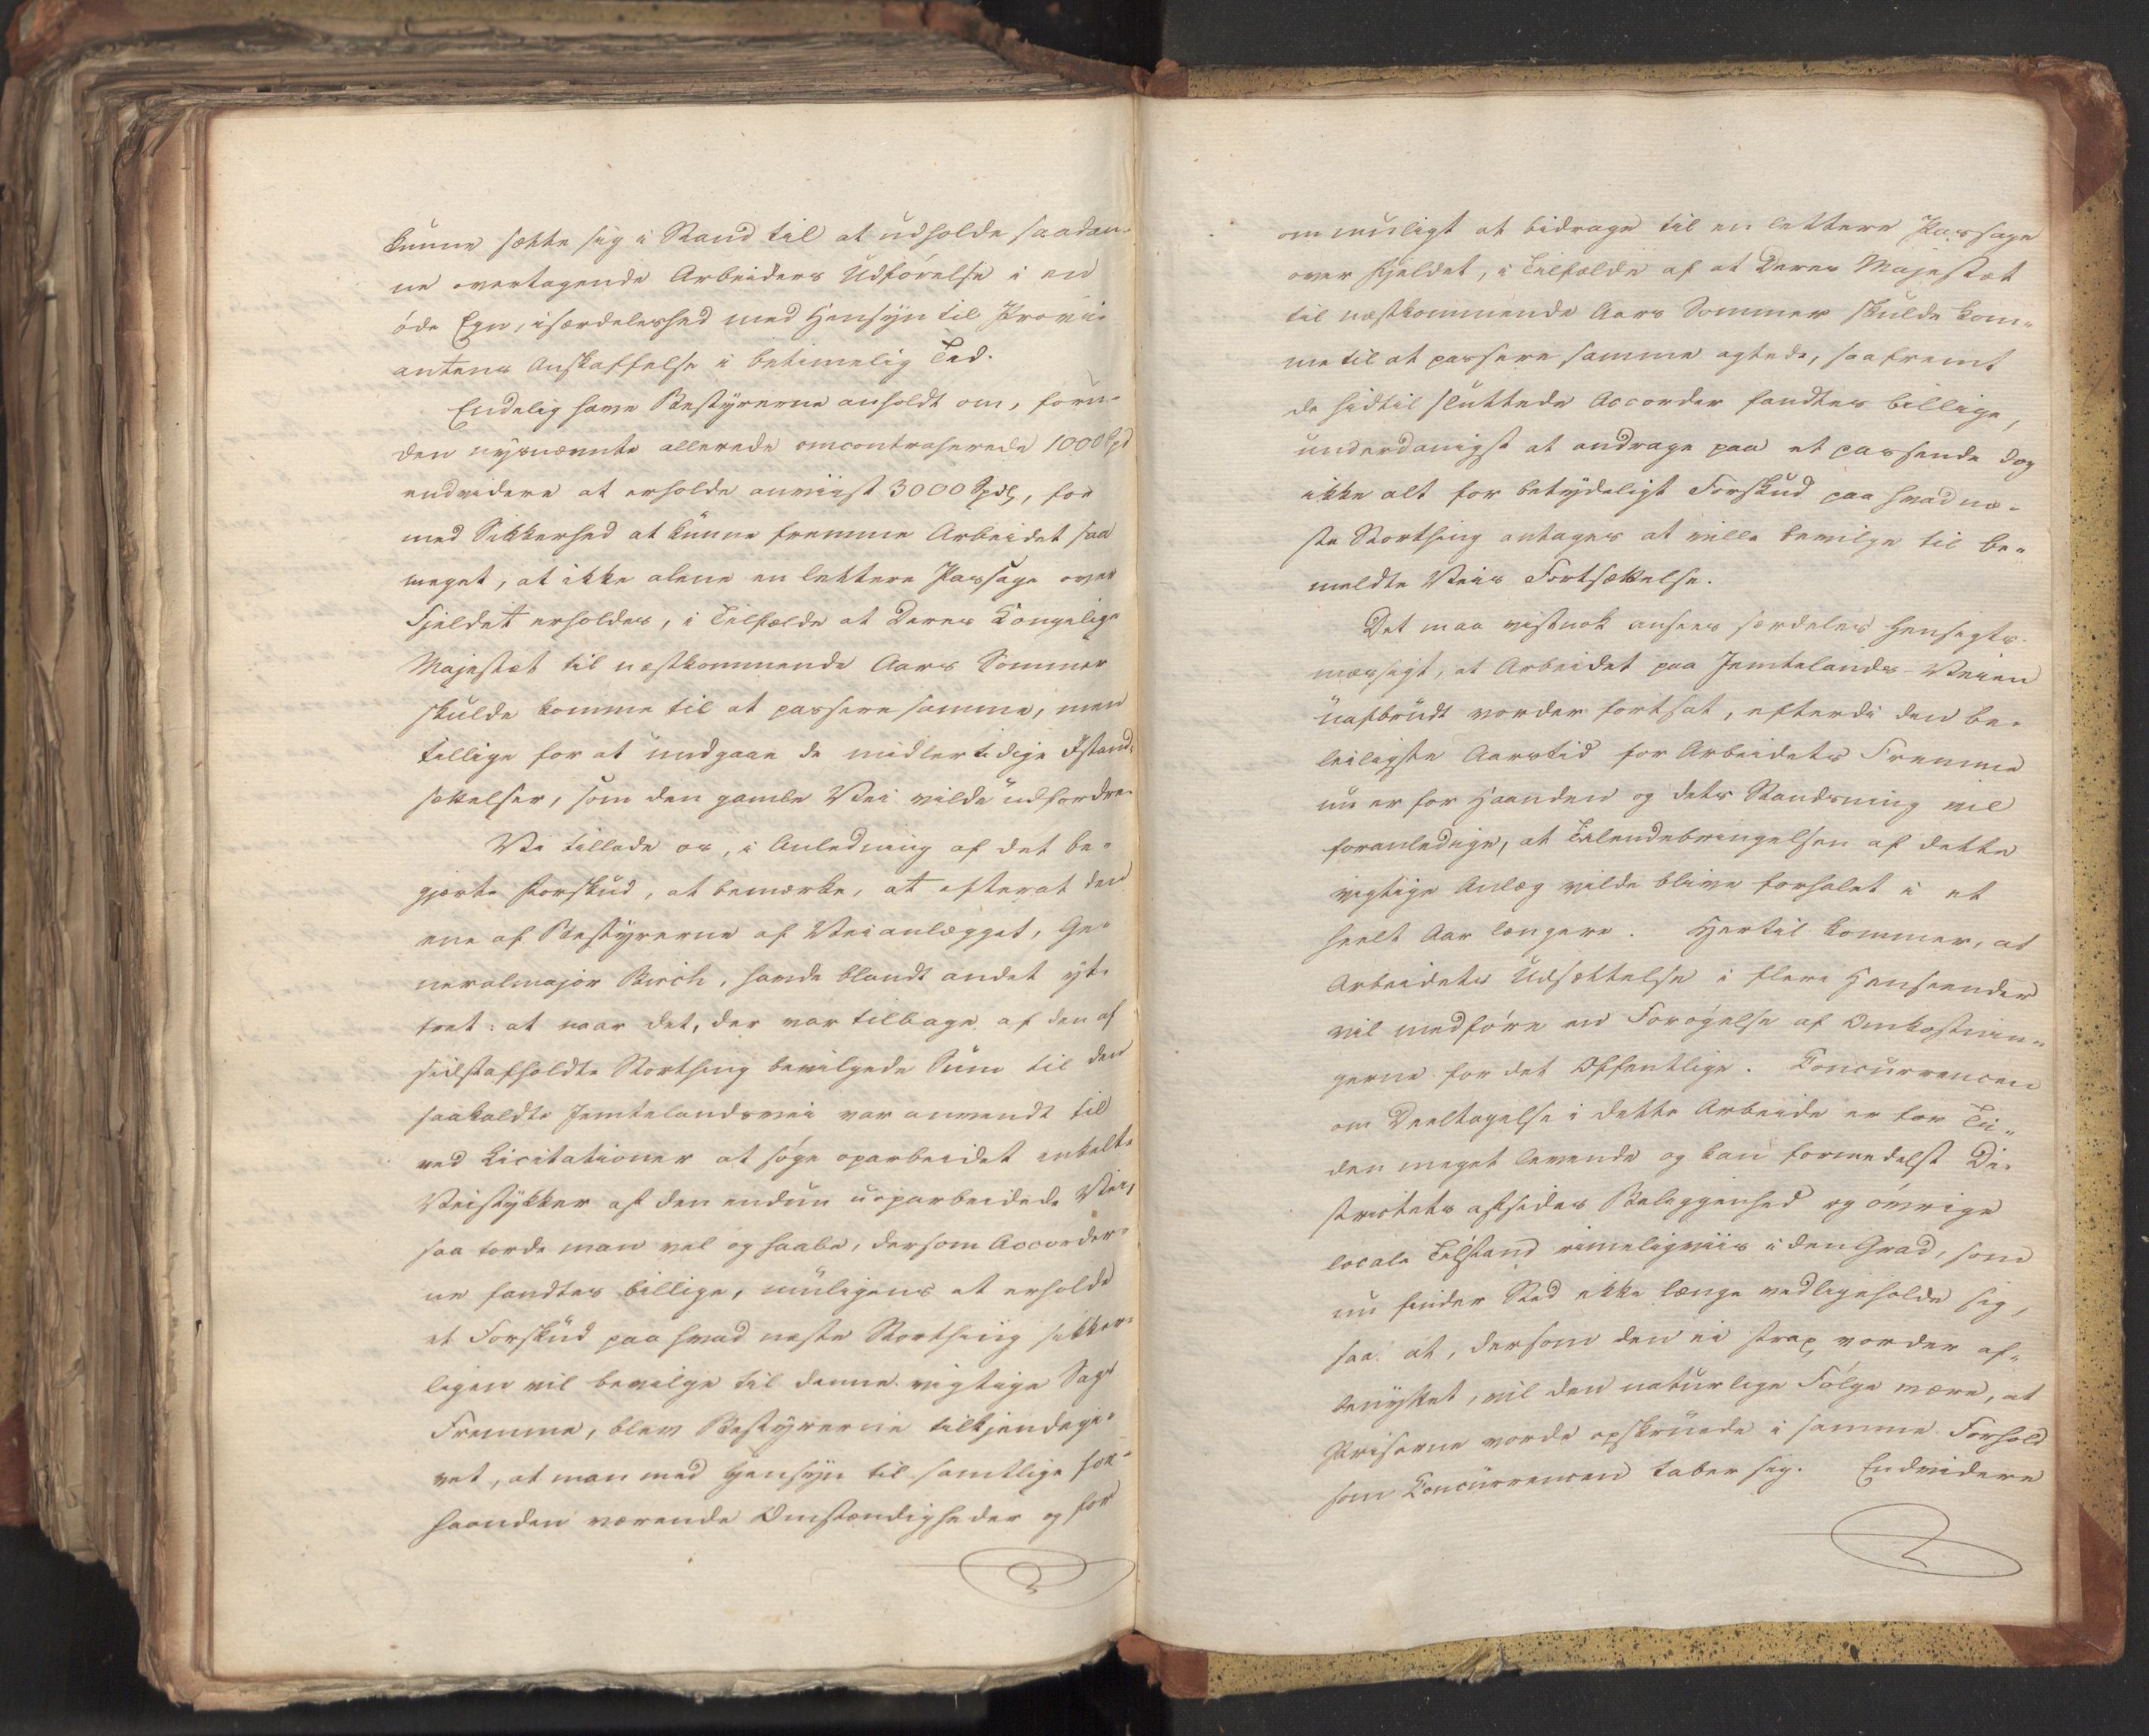 kunne sætte sig i Stand til at udholde saadan-
ne overtagende Arbeiders Udförelse i en
öde Egn, isærdeleshed med Hensyn til Provi-
antens Anskaffelse i betimelig Tid.
Endelig have Bestyrerne anholdt om, foru-
den nysnævnte allerede omcontraherede 1000 Spd
endvidere at erholde anviist 3000 Spdlr, for
med Sikkerhed at kunne fremme Arbeidet saa
meget, at ikke alene en lettere Passage over
Fjeldet erholdes, i Tilfælde at Deres Kongelige
Majestæt til næstkommende Aars Sommer
skulde komme til at passere samme, men
tillige for at undgaae de midlertidige Istand-
sættelser, som den gamle Vei vilde udfordre.
Vi tillade os, i Anledning af det be-
gjerte Forskud, at bemærke, at efterat den
ene af Bestyrerne af Veianlægget, Ge-
neralmajor Birch, havde blandt andet yt-
tret: at naar det, der var tilbage af den af
sidstafholdte Storthing bevilgede Sum til den
saakaldte Jemtelandsvei var anvendt til
ved Licitationer at söge oparbeidet enkelte
Veistykker af den endnu uoparbeidede Vei,
saa torde man vel og haabe, dersom Accorder-
ne fandtes billige, muligens at erholde
et Forskud paa hvad neste Storthing sikker-
ligen vil bevilge til denne vigtige Sags
Fremme, blev Bestyrerne tilkjendegi-
vet, at man med Hensyn til samtlige for-
haanden værende Omstændigheder og for
om muligt at bidrage til en lettere Passage
over Fjeldet, i Tilfælde af at Deres Majestæt
til næstkommende Aars Sommer skulde kom-
me til at passere samme agtede, saafremt
de hidtil sluttede Accorder fandtes billige,
underdanigst at andrage paa et passende dog
ikke alt for betydeligt Forskud paa hvad næ-
ste Storthing antages at ville bevilge til be-
meldte Veis Fortsættelse.
Det maa vistnok ansees særdeles Hensigts-
mæssigt, at Arbeidet paa Jemtelands-Veien
uafbrudt vorder fortsat, efterdi den be-
leiligste Aarstid for Arbeidets Fremme
nu er for Haanden og dets Standsning vil
foranledige, at Tilendebringelsen af dette
vigtige Anlæg vilde blive forhalet i et
heelt Aar længere. Hertil kommer, at
Arbeidets Udsættelse i flere Henseender
vil medföre en Forögelse af Omkostnin-
gerne for det Offentlige. Concurrencen
om Deeltagelse i dette Arbeide er for Ti-
den meget levende og kan formedelst Di-
strictets afsides Beliggenhed og övrige
locale Tilstand rimeligviis i den Grad, som
nu finder Sted ikke længe vedligeholde sig,
saa at, dersom den ei strax vorder af-
benyttet, vil den naturlige Fölge være, at
Priserne vorde opskruede i samme Forhold
som Concurrencen taber sig. Endvidere